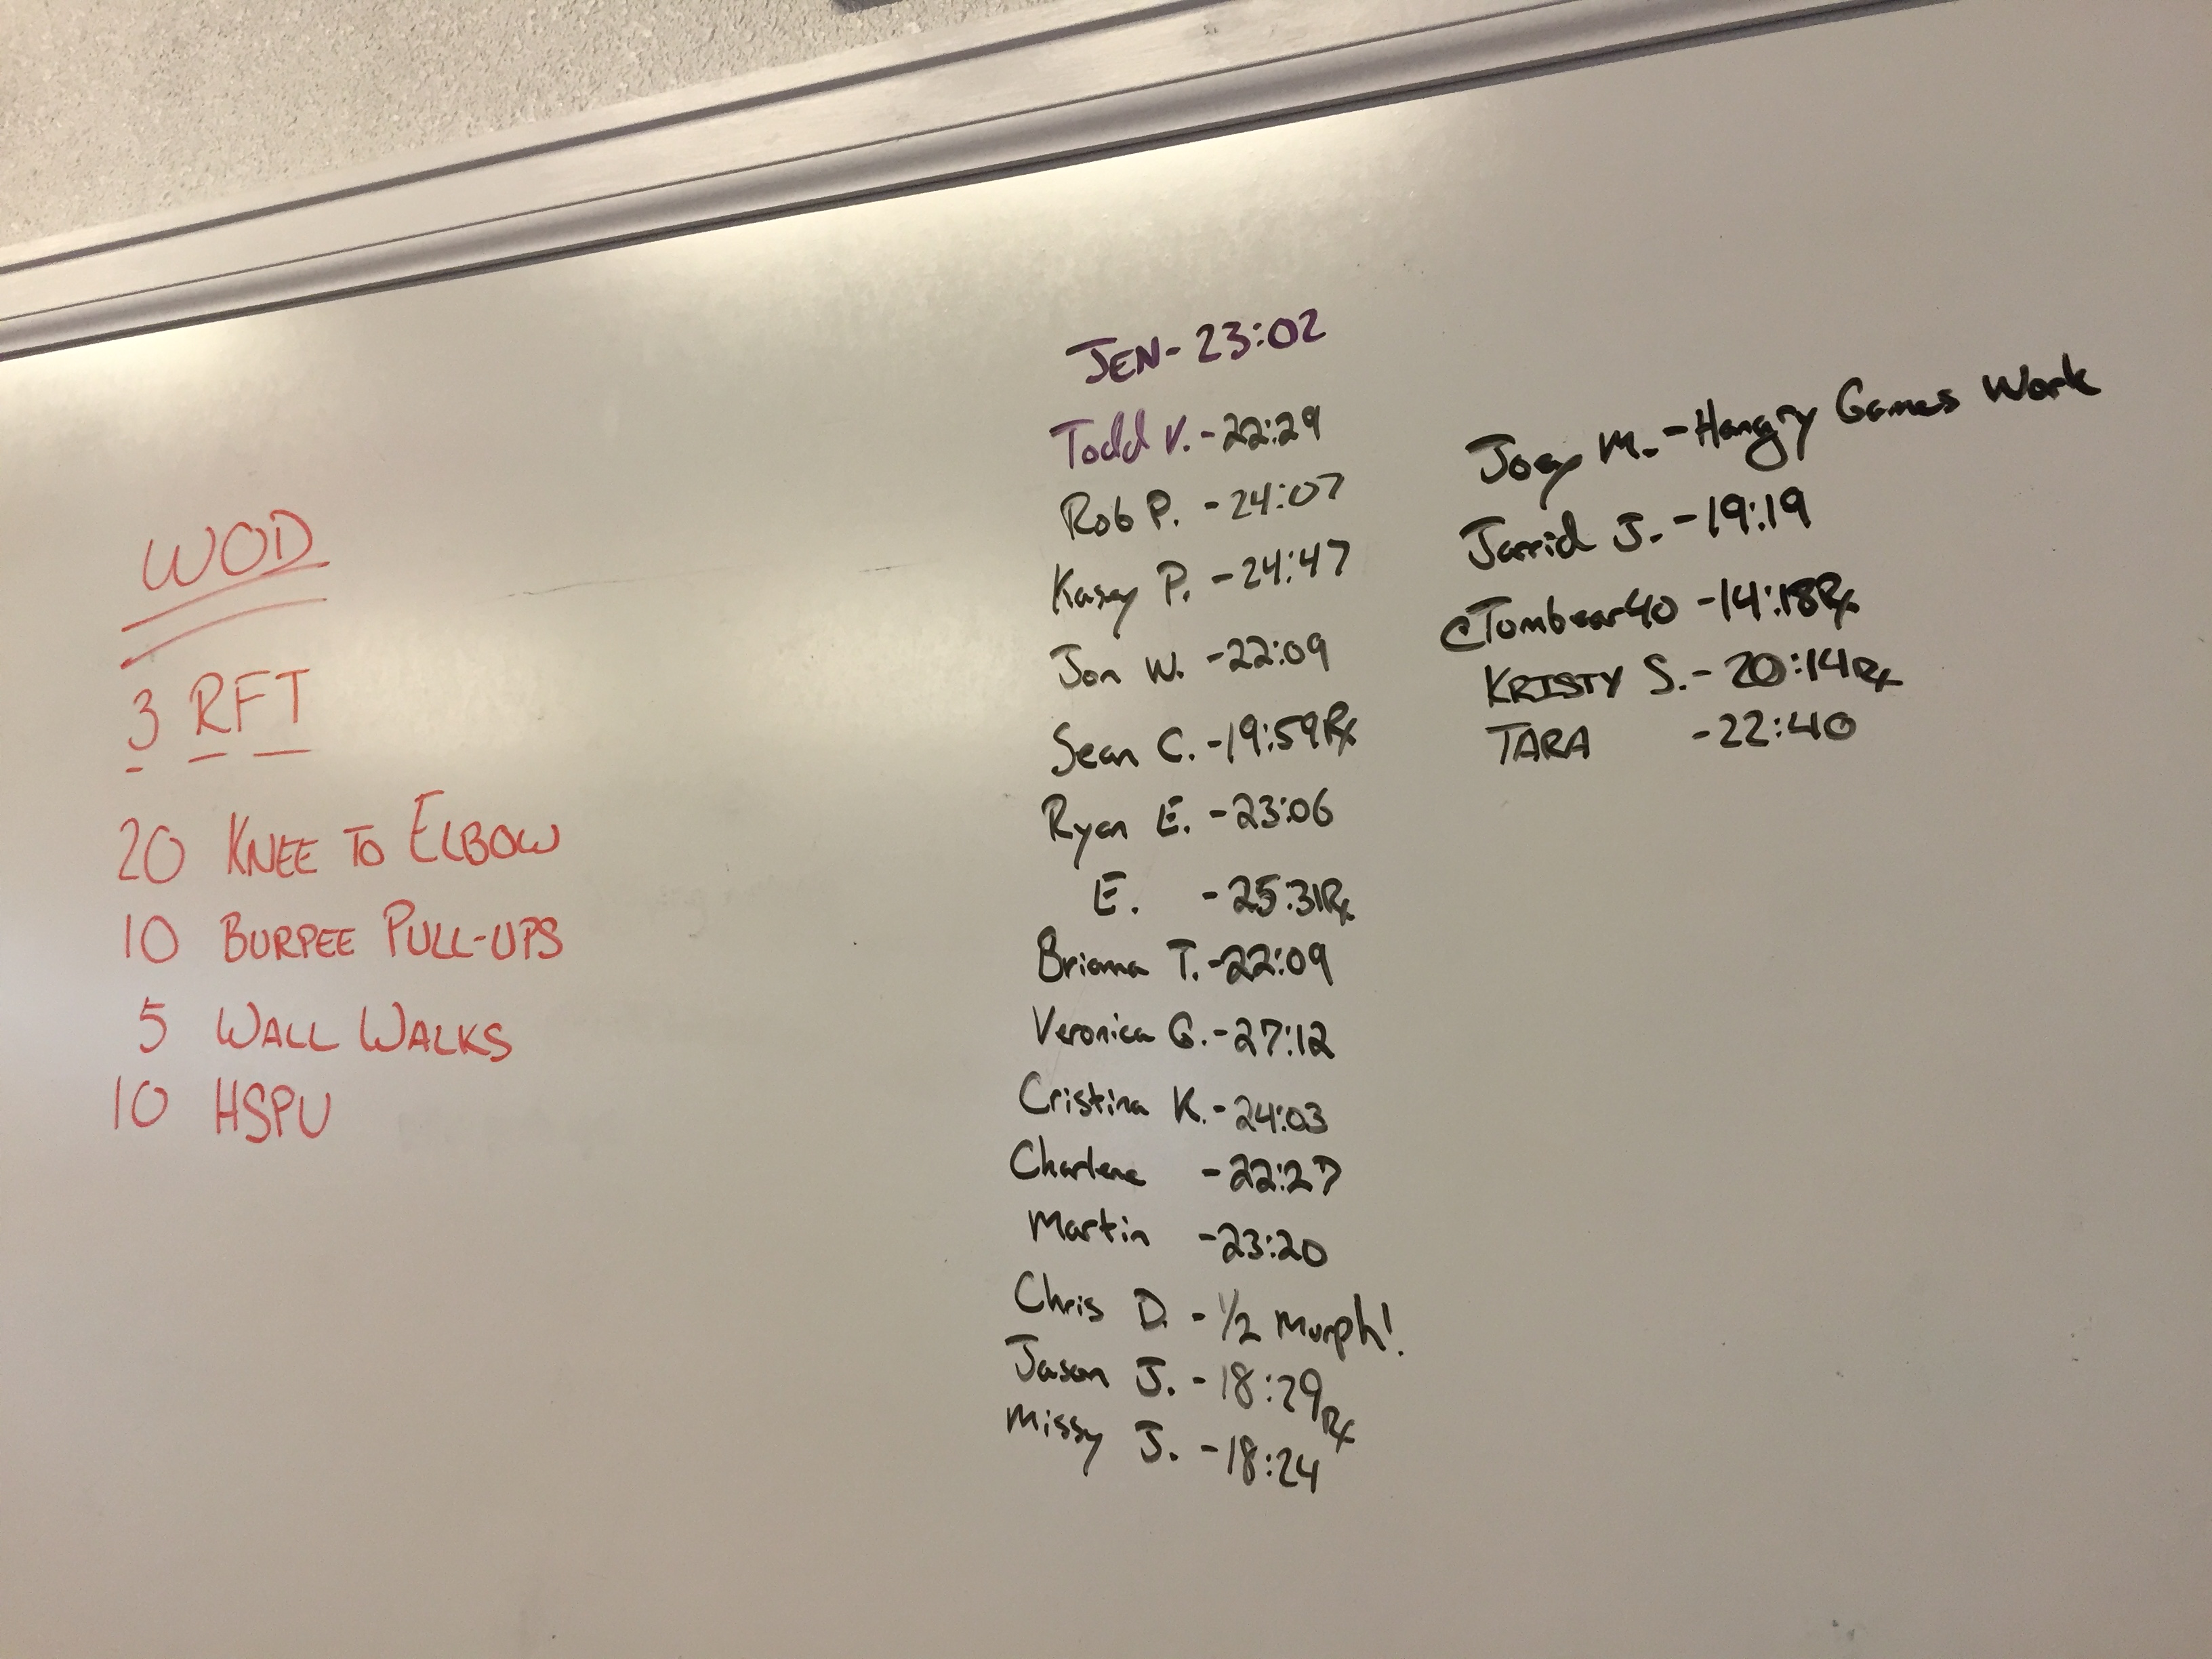 WOD
3 RFT
20 KNEE TO ELBOW
10 BURPEE PULL-UPS
5 WALL WALKS
10 HSPU
JEN- 23:02
Todd V. - 22:29
Rob P. - 24:07
Kasey P. - 24:47
Jon W. - 22:09
Sean C. - 19:59 Rx
Ryan E. - 23:06
E. - 25:31 Rx
Brianna T. - 22:09
Veronica G. - 27:12
Cristina K. - 24:03
Charlene - 22:27
Martin - 23:20
Chris D. - 1/2 Murph!
Jason J. - 18:29 Rx
Missy J. - 18:24
Joey M. - Hangry Games Work
Jarrid J. - 19:19
@Tombear40 - 14:18 Rx
KRISTY S. - 20:14 Rx
TARA - 22:40